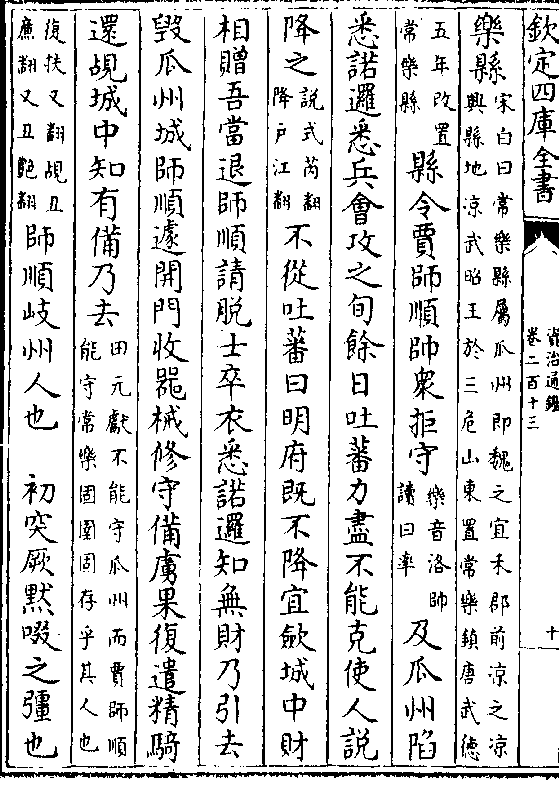 欽定四庫全書
資治通鑑
卷二百十三
十
樂縣宋白曰常樂縣屬瓜州即魏之宜禾郡前凉之凉興縣地凉武昭王於三危山東置常樂鎮唐武德
五年改置常樂縣縣令賈師順帥衆拒守樂音洛帥讀曰率及瓜州陷
悉諾邏悉兵會攻之旬餘日吐蕃力盡不能克使人説
降之説式芮翻降戸江翻不從吐蕃曰明府既不降宜歛城中財
相贈吾當退師順請脱士卒衣悉諾邏知無財乃引去
毀瓜州城師順遽開門收噐械修守備虜果復遣精騎
還覘城中知有備乃去田元獻不能守瓜州而賈師順能守常樂圄圉固存乎其人也
復扶又翻覘丑亷翻又丑艶翻師順岐州人也　初突厥黙啜之彊也